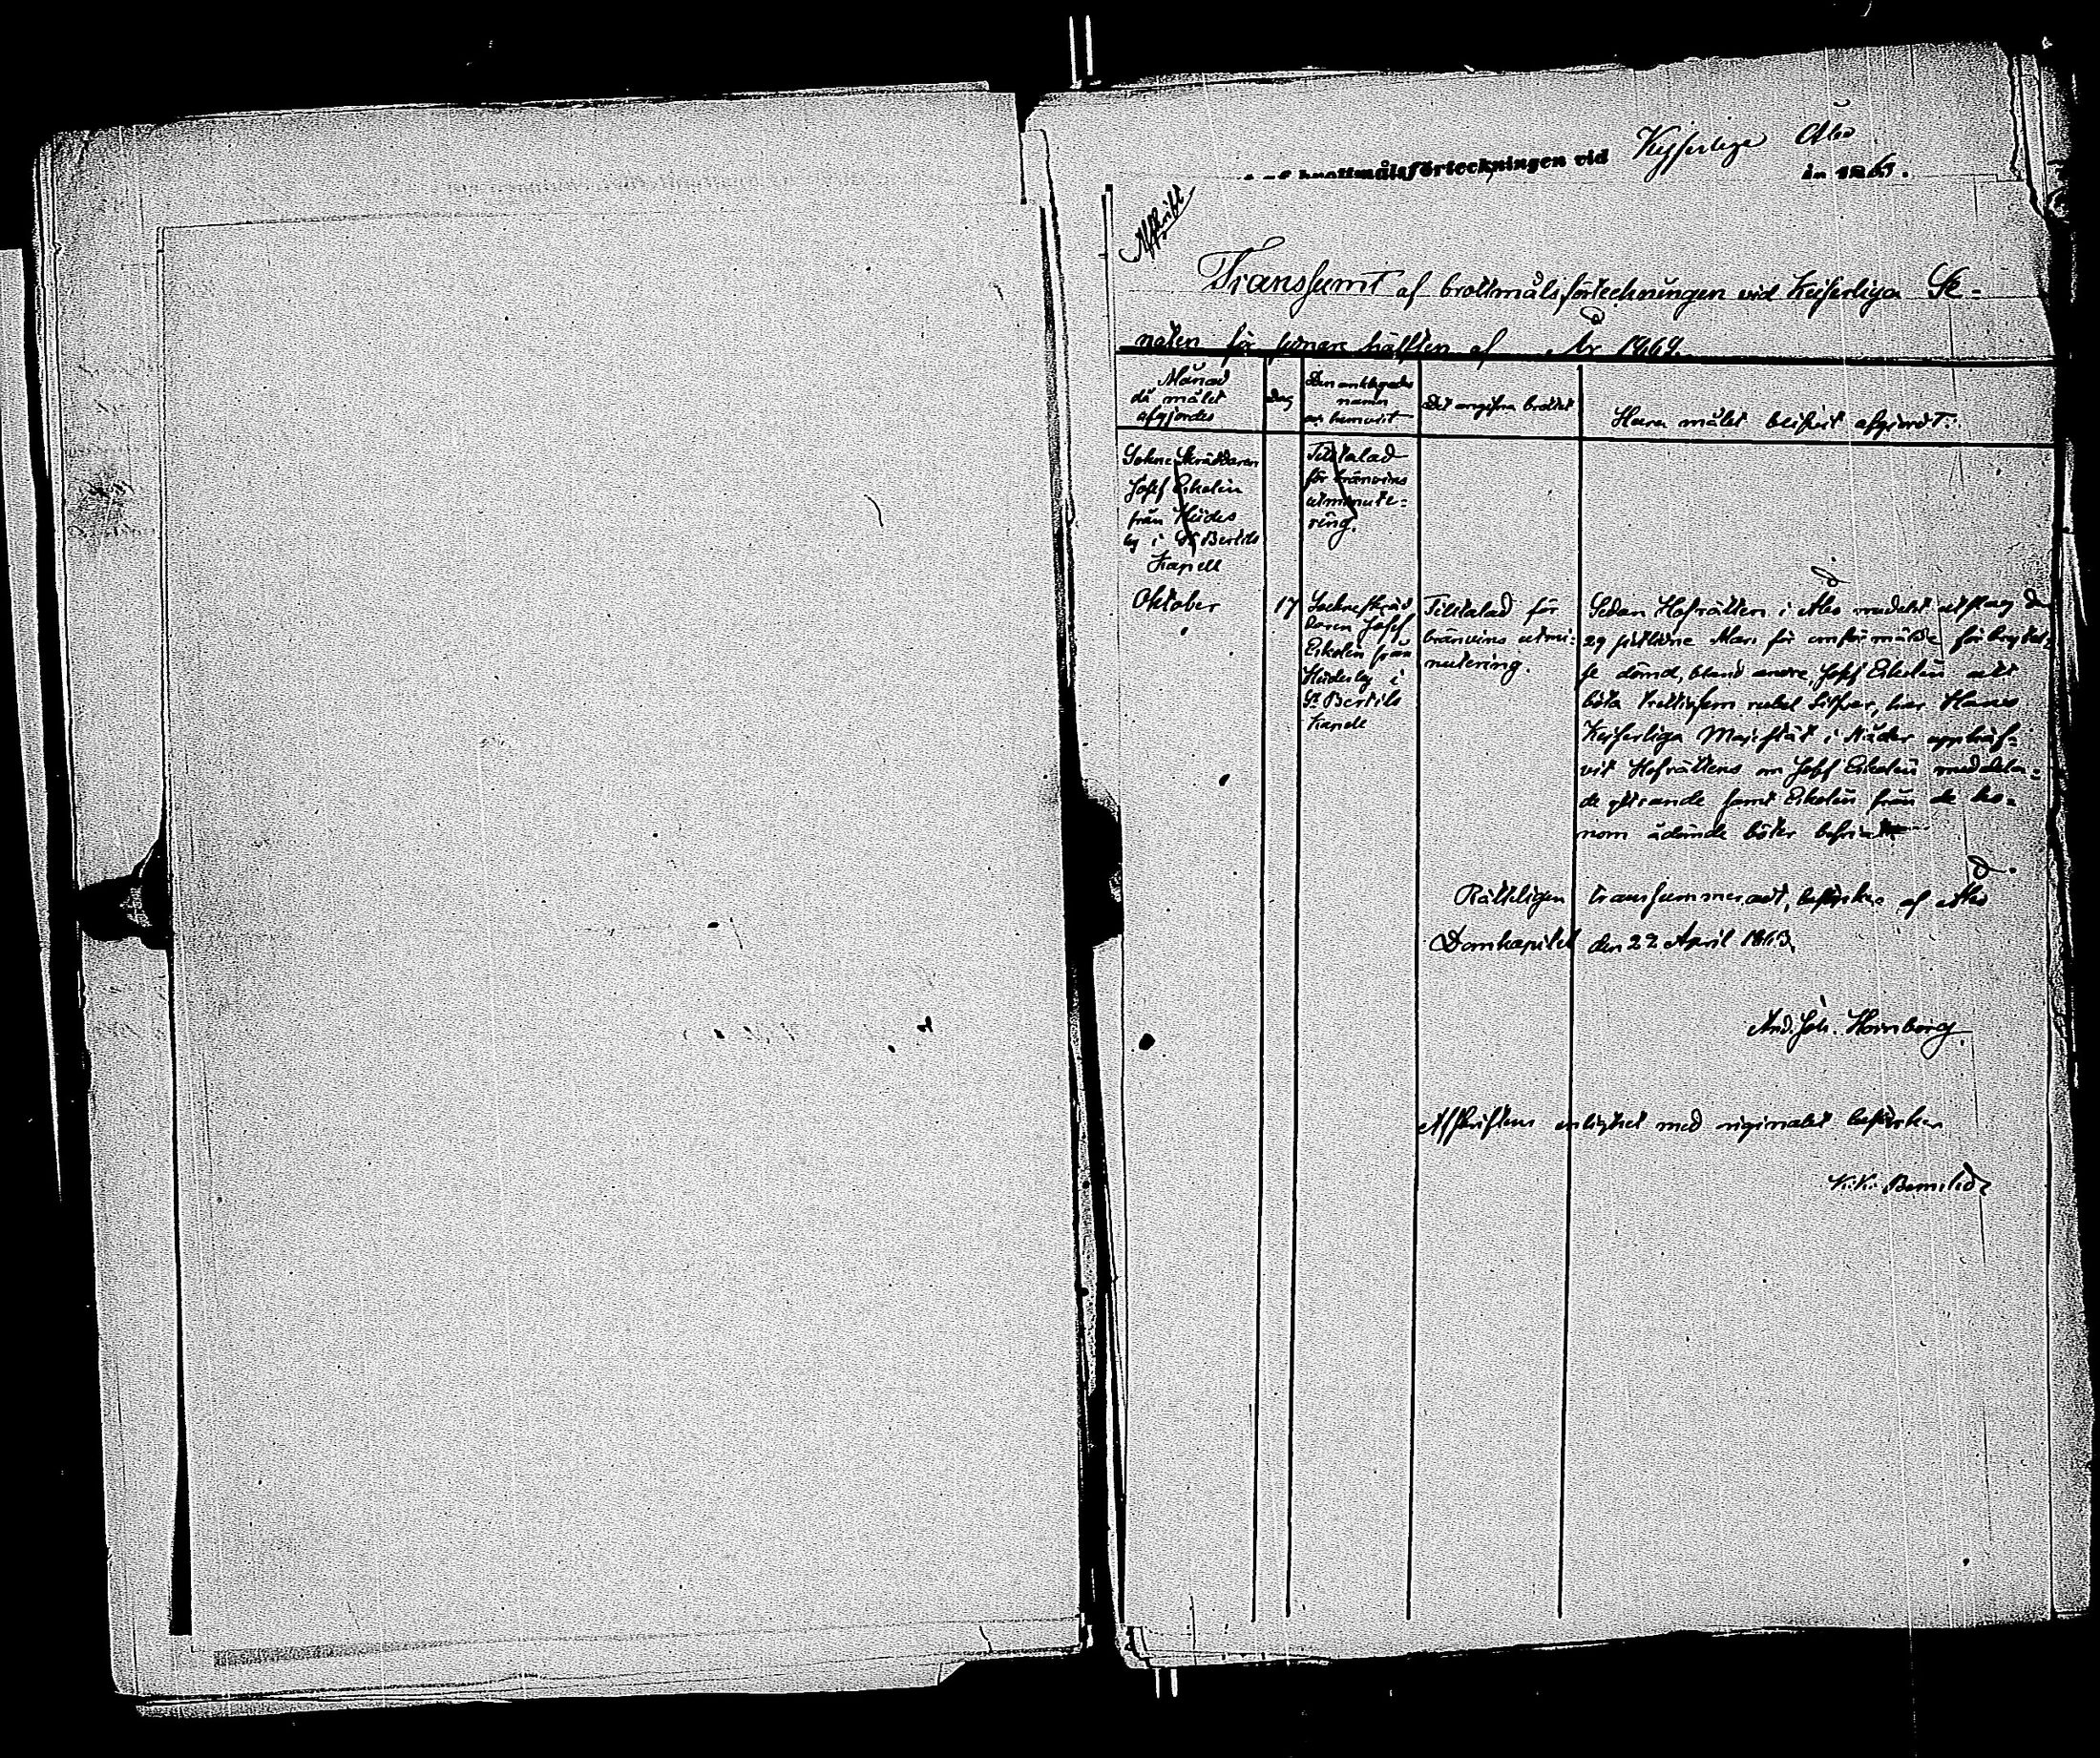 brottmålsförteckningen vid Kejserliga Åbo
år 186
Afskrift
Transsumt af brottmålsförteckningen vid Kejserliga Se-
naten för senare hälften af År
Månad
då målet
afgjordes
Dag
Den anklagades
namn
och hemvist
Det angifna brottet
Huru målet blifvit afgjordt.
Sockne Skräddaren
Josef Eskolin
från
by i St Bertils
Kapell
Tilltalad
för bränvins
utminute-
ring.
Oktober
17
Sockneskräd
daren Josef
Eskolin från
by i
St Bertils
Kapell
Tilltalad för
bränvins utmi-
nutering.
Sedan Hofrätten i Åbo medelst utslag den
29 sistlidne Mars för omförmälde förbrytel-
se dömd, bland andre, Josef Eskolin att
böta trettiofem rubel Silfver, har Hans
Kejserliga Majestät i Nåder upphäf-
vit Hofrättens om Josef Eskolin meddela-
de yttrande samt Eskolin från de ho-
nom ådömde böter befriat
Rätteligen transsummeradt, bestyrkes af Åbo
Domkapitel den 22 April 1863.
And. Joh. Hornborg.
Afskriftens enlighet med originalet bestyrker
K. K.